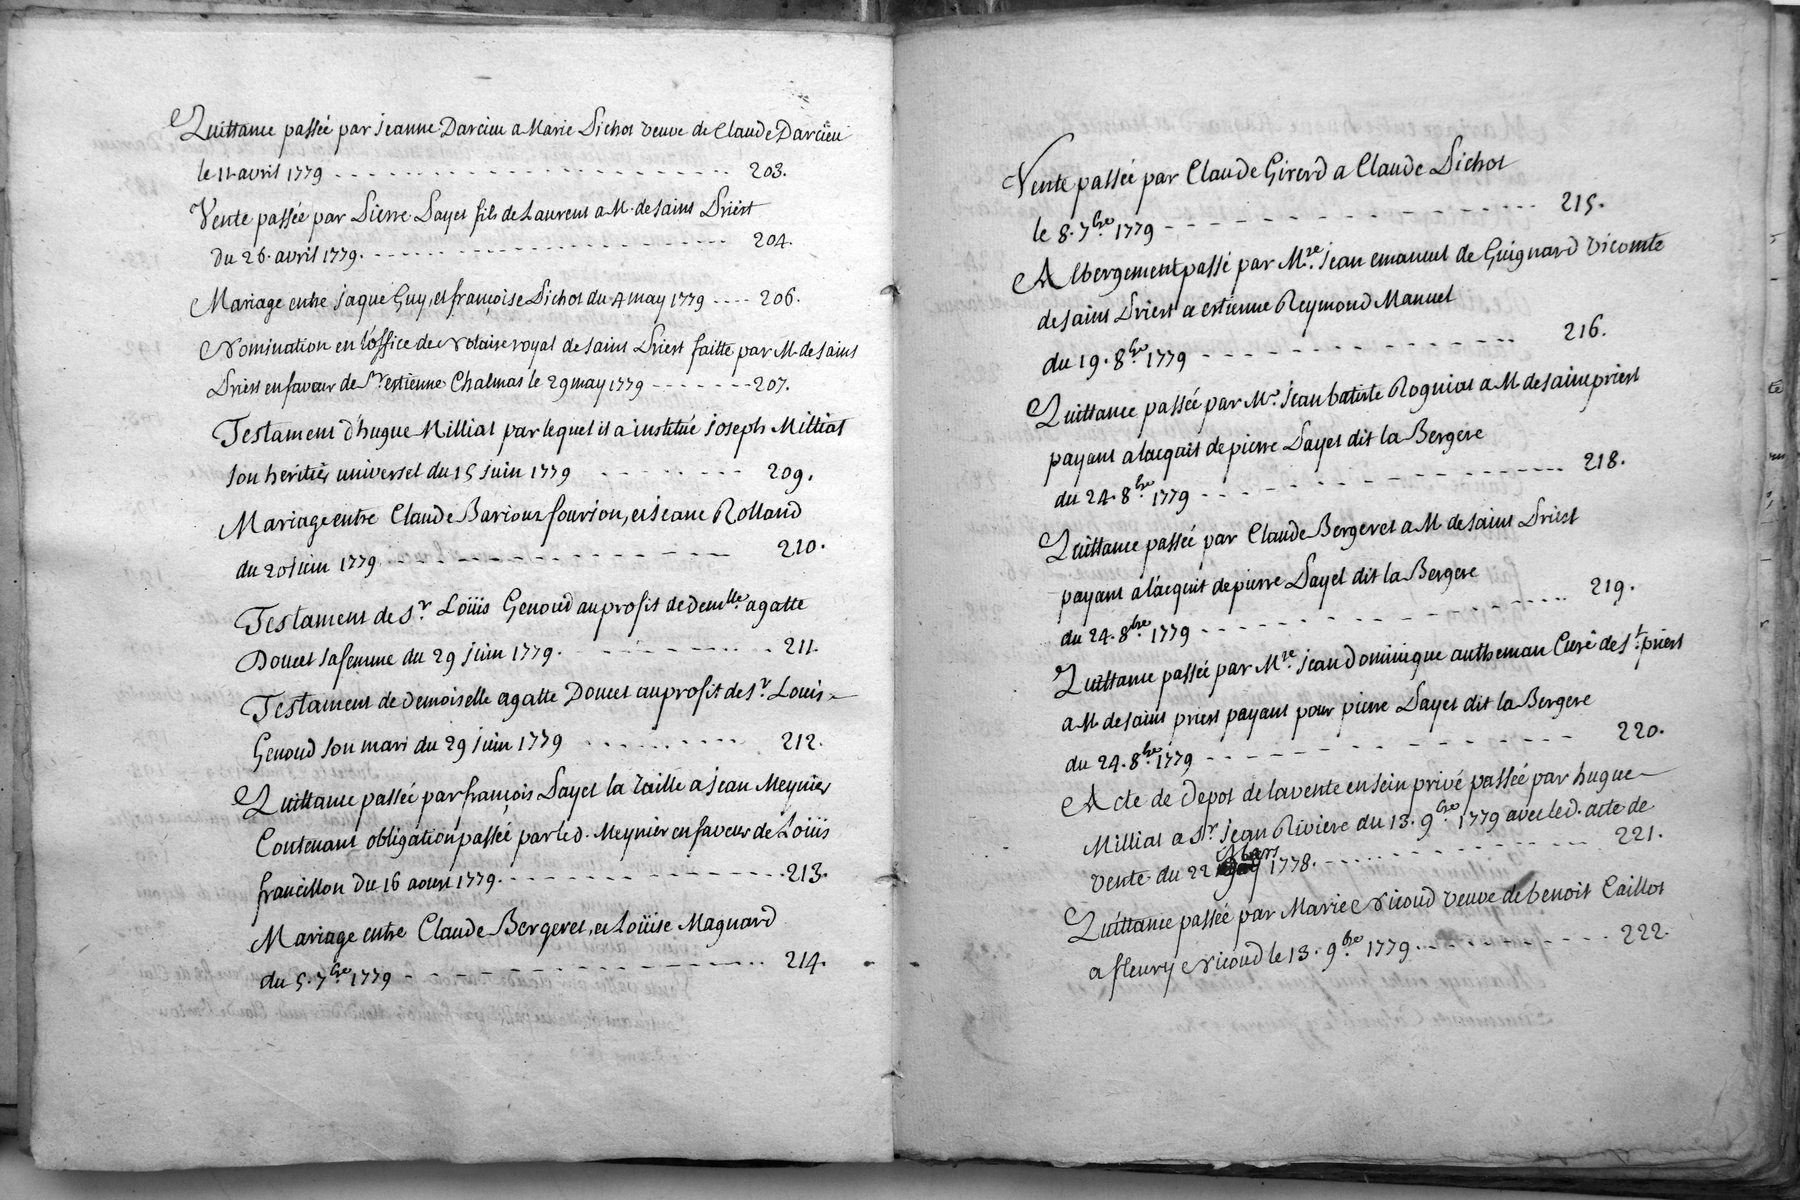 Quittance passée par jeanne Darcieu a Marie Pichot veuve de Claude Darcieu
le 11 avril 1779 - - - - - - - - - - - - 203.
Vente passée par Pierre Payet fils de Laurent a M. de saint Priest
du 26. avril 1779. - - - - - - - - - - - - 204.
Mariage entre jaque Guy, et françoise Pichot du 4 may 1779 - - - - 206.
Nomination en l'office de Notaire royal de saint Priest faitte par M. de saint
Priest en faveur de Sr estienne Chalmas le 29 may 1779 - - - - - - - 207.
Testament d'hugue Milliat par lequel il a institué joseph Milliat
son heritier universel du 15 juin 1779 - - - - - - - 209.
Mariage entre Claude Bariour fourion, et jeane Rolland
du 20 juin 1779 - - - - - - - - - - - - 210.
Testament de Sr. Loüis Genoud au profit de demlle. agatte
Doucet sa femme du 29 juin 1779. - - - - - - - - 211.
Testament de demoiselle agatte Doucet au profit de Sr. Louis
Genoud son mari du 29 juin 1779 - - - - - - - - 212.
Quittance passée par françois Payet la taille a jean Meynier
Contenant obligation passée par led. Meynier en faveur de Loüis
francillon du 16 aoust 1779. - - - - - - - - - - - - 213.
Mariage entre Claude Bergeret, et Loüise Magnard
du 5. 7bre. 1779 - - - - - - - - - - - - 214.
Vente passée par Claude Girerd a Claude Pichot
le 8. 7bre. 1779 - - - - - - - - - - - - 215.
Albergement passé par Mre. jean emanuel de Guignard vicomte
de saint Priest a estienne Reymond Manuel
du 19. 8bre. 1779 - - - - - - - - - - - - 216.
Quittance passée par Mr. jean batiste Roguiat a M. de saint priest
payant a l'acquit de pierre Payet dit la Bergere
du 24. 8bre. 1779 - - - - - - - - - - - - 218.
Quittance passée par Claude Bergeret a M. de saint Priest
payant a l'acquit de pierre Payet dit la Bergere
du 24. 8bre. 1779 - - - - - - - - - - - - 219.
Quittance passée par Mre. jean dominique antheman Curé de St. priest
a M. de saint priest payant pour pierre Payet dit la Bergere
du 24. 8bre. 1779 - - - - - - - - - - - - 220.
Acte de depot de la vente en sein privé passée par hugue
Milliat a Sr. jean Riviere du 13. 9bre. 1779 avec led. acte de
vente du 22 Mars 1778. - - - - - - - - - - - - 221.
Quittance passée par Marie Nicoud veuve de benoit Caillot
a fleury Nicoud le 13. 9bre. 1779. - - - - - - - - - - 222.